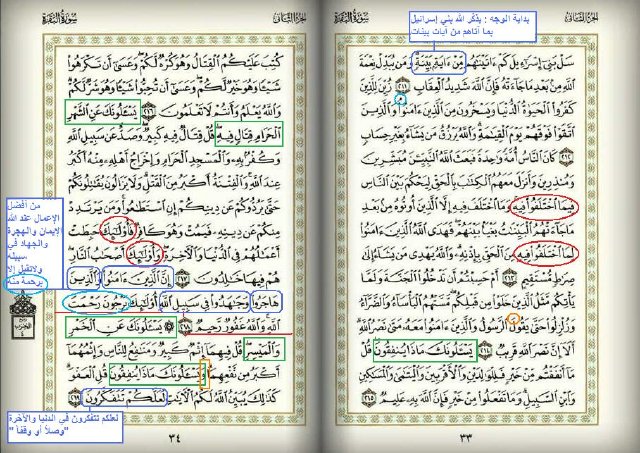 سُورَةُ البَقَرَةِ
الجُزءُ الثَّانِي
بداية الوجه : يذكّر الله بني إسرائيل
بما آتاهم من آيات بينات
سَلْ بَنِىٓ إِسْرَٰٓءِيلَ كَمْ ءَاتَيْنَٰهُم مِّنْ ءَايَةٍۭ بَيِّنَةٍۢ وَمَن يُبَدِّلْ نِعْمَةَ
ٱللَّهِ مِنۢ بَعْدِ مَا جَآءَتْهُ فَإِنَّ ٱللَّهَ شَدِيدُ ٱلْعِقَابِ ٢١١ زُيِّنَ لِلَّذِينَ
كَفَرُوا۟ ٱلْحَيَوٰةُ ٱلدُّنْيَا وَيَسْخَرُونَ مِنَ ٱلَّذِينَ ءَامَنُوا۟ وَٱلَّذِينَ
ٱتَّقَوْا۟ فَوْقَهُمْ يَوْمَ ٱلْقِيَٰمَةِ وَٱللَّهُ يَرْزُقُ مَن يَشَآءُ بِغَيْرِ حِسَابٍۢ
٢١٢ كَانَ ٱلنَّاسُ أُمَّةًۭ وَٰحِدَةًۭ فَبَعَثَ ٱللَّهُ ٱلنَّبِيِّـۧنَ مُبَشِّرِينَ
وَمُنذِرِينَ وَأَنزَلَ مَعَهُمُ ٱلْكِتَٰبَ بِٱلْحَقِّ لِيَحْكُمَ بَيْنَ ٱلنَّاسِ
فِيمَا ٱخْتَلَفُوا۟ فِيهِ وَمَا ٱخْتَلَفَ فِيهِ إِلَّا ٱلَّذِينَ أُوتُوهُ مِنۢ بَعْدِ
مَا جَآءَتْهُمُ ٱلْبَيِّنَٰتُ بَغْيًۢا بَيْنَهُمْ فَهَدَى ٱللَّهُ ٱلَّذِينَ ءَامَنُوا۟
لِمَا ٱخْتَلَفُوا۟ فِيهِ مِنَ ٱلْحَقِّ بِإِذْنِهِۦ وَٱللَّهُ يَهْدِى مَن يَشَآءُ إِلَىٰ
صِرَٰطٍۢ مُّسْتَقِيمٍ ٢١٣ أَمْ حَسِبْتُمْ أَن تَدْخُلُوا۟ ٱلْجَنَّةَ وَلَمَّا
يَأْتِكُم مَّثَلُ ٱلَّذِينَ خَلَوْا۟ مِن قَبْلِكُم مَّسَّتْهُمُ ٱلْبَأْسَآءُ وَٱلضَّرَّآءُ
وَزُلْزِلُوا۟ حَتَّىٰ يَقُولَ ٱلرَّسُولُ وَٱلَّذِينَ ءَامَنُوا۟ مَعَهُۥ مَتَىٰ نَصْرُ ٱللَّهِ
أَلَآ إِنَّ نَصْرَ ٱللَّهِ قَرِيبٌۭ ٢١٤ يَسْـَٔلُونَكَ مَاذَا يُنفِقُونَ قُلْ
مَآ أَنفَقْتُم مِّنْ خَيْرٍۢ فَلِلْوَٰلِدَيْنِ وَٱلْأَقْرَبِينَ وَٱلْيَتَٰمَىٰ وَٱلْمَسَٰكِينِ
وَٱبْنِ ٱلسَّبِيلِ وَمَا تَفْعَلُوا۟ مِنْ خَيْرٍۢ فَإِنَّ ٱللَّهَ بِهِۦ عَلِيمٌۭ ٢١٥
٣٣
الجُزءُ الثَّانِي
سُورَةُ البَقَرَةِ
كُتِبَ عَلَيْكُمُ ٱلْقِتَالُ وَهُوَ كُرْهٌۭ لَّكُمْ وَعَسَىٰٓ أَن تَكْرَهُوا۟
شَيْـًۭٔا وَهُوَ خَيْرٌۭ لَّكُمْ وَعَسَىٰٓ أَن تُحِبُّوا۟ شَيْـًۭٔا وَهُوَ شَرٌّۭ لَّكُمْ
وَٱللَّهُ يَعْلَمُ وَأَنتُمْ لَا تَعْلَمُونَ ٢١٦ يَسْـَٔلُونَكَ عَنِ ٱلشَّهْرِ
ٱلْحَرَامِ قِتَالٍۢ فِيهِ قُلْ قِتَالٌۭ فِيهِ كَبِيرٌۭ وَصَدٌّ عَن سَبِيلِ ٱللَّهِ
وَكُفْرٌۢ بِهِۦ وَٱلْمَسْجِدِ ٱلْحَرَامِ وَإِخْرَاجُ أَهْلِهِۦ مِنْهُ أَكْبَرُ
عِندَ ٱللَّهِ وَٱلْفِتْنَةُ أَكْبَرُ مِنَ ٱلْقَتْلِ وَلَا يَزَالُونَ يُقَٰتِلُونَكُمْ
حَتَّىٰ يَرُدُّوكُمْ عَن دِينِكُمْ إِنِ ٱسْتَطَٰعُوا۟ وَمَن يَرْتَدِدْ
مِنكُمْ عَن دِينِهِۦ فَيَمُتْ وَهُوَ كَافِرٌۭ فَأُو۟لَٰٓئِكَ حَبِطَتْ
أَعْمَٰلُهُمْ فِى ٱلدُّنْيَا وَٱلْـَٔاخِرَةِ وَأُو۟لَٰٓئِكَ أَصْحَٰبُ ٱلنَّارِ
هُمْ فِيهَا خَٰلِدُونَ ٢١٧ إِنَّ ٱلَّذِينَ ءَامَنُوا۟ وَٱلَّذِينَ
هَاجَرُوا۟ وَجَٰهَدُوا۟ فِى سَبِيلِ ٱللَّهِ أُو۟لَٰٓئِكَ يَرْجُونَ رَحْمَتَ
ٱللَّهِ وَٱللَّهُ غَفُورٌۭ رَّحِيمٌۭ ٢١٨ ۞ يَسْـَٔلُونَكَ عَنِ ٱلْخَمْرِ
وَٱلْمَيْسِرِ قُلْ فِيهِمَآ إِثْمٌۭ كَبِيرٌۭ وَمَنَٰفِعُ لِلنَّاسِ وَإِثْمُهُمَآ
أَكْبَرُ مِن نَّفْعِهِمَا وَيَسْـَٔلُونَكَ مَاذَا يُنفِقُونَ قُلِ ٱلْعَفْوَ
كَذَٰلِكَ يُبَيِّنُ ٱللَّهُ لَكُمُ ٱلْـَٔايَٰتِ لَعَلَّكُمْ تَتَفَكَّرُونَ ٢١٩
٣٤
من أفضل
الإعمال عند الله
الإيمان والهجرة
والجهاد في
سبيله
ولاتقبل إلا
برحمة منه
لعلكم تتفكرون في الدنيا والآخرة
"وصلاً أو وقفاً"